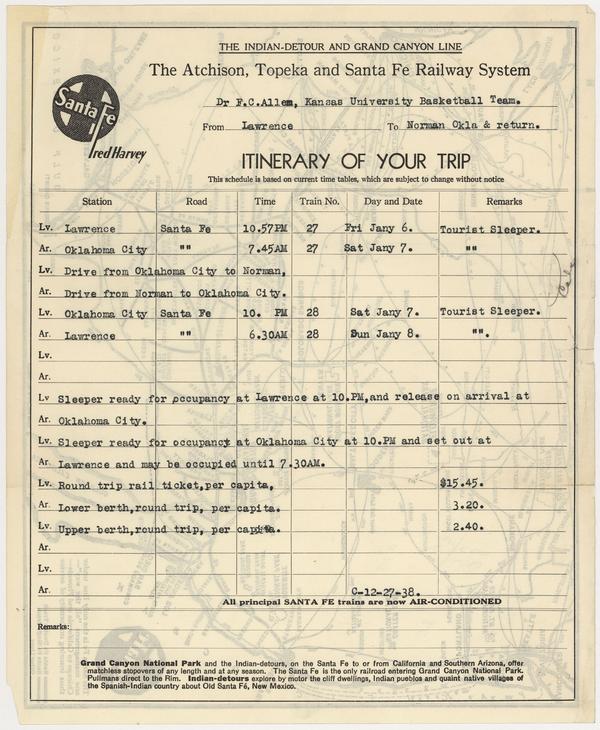 THE INDIAN-DETOUR AND GRAND CANYON LINE
The Atchison, Topeka and Santa Fe Railway System
Santa Fe
Fred Harvey
Dr F.C.Allem, Kansas University Basketball Team.
From Lawrence To Norman Okla & return.
ITINERARY OF YOUR TRIP
This schedule is based on current time tables, which are subject to change without notice
Station Road Time Train No. Day and Date Remarks
Lv. Lawrence Santa Fe 10.57PM 27 Fri Jany 6. Tourist Sleeper.
Ar. Oklahoma City "" 7.45AM 27 Sat Jany 7. ""
Lv. Drive from Oklahoma City to Norman,
Ar. Drive from Norman to Oklahoma City.
Lv. Oklahoma City Santa Fe 10. PM 28 Sat Jany 7. Tourist Sleeper.
Ar. Lawrence "" 6.30AM 28 Sun Jany 8. "".
Lv.
Ar.
Lv Sleeper ready for occupancy at Lawrence at 10.PM,and release on arrival at
Ar. Oklahoma City.
Lv. Sleeper ready for occupancy at Oklahoma City at 10.PM and set out at
Ar. Lawrence and may be occupied until 7.30AM.
Lv. Round trip rail ticket,per capita, $15.45.
Ar. Lower berth,round trip, per capita. 3.20.
Lv. Upper berth,round trip, per capita. 2.40.
Ar.
Lv.
Ar. C-12-27-38.
All principal SANTA FE trains are now AIR-CONDITIONED
Remarks:
Grand Canyon National Park and the Indian-detours, on the Santa Fe to or from California and Southern Arizona, offer
matchless stopovers of any length and at any season. The Santa Fe is the only railroad entering Grand Canyon National Park.
Pullmans direct to the Rim. Indian-detours explore by motor the cliff dwellings, Indian pueblos and quaint native villages of
the Spanish-Indian country about Old Santa Fé, New Mexico.